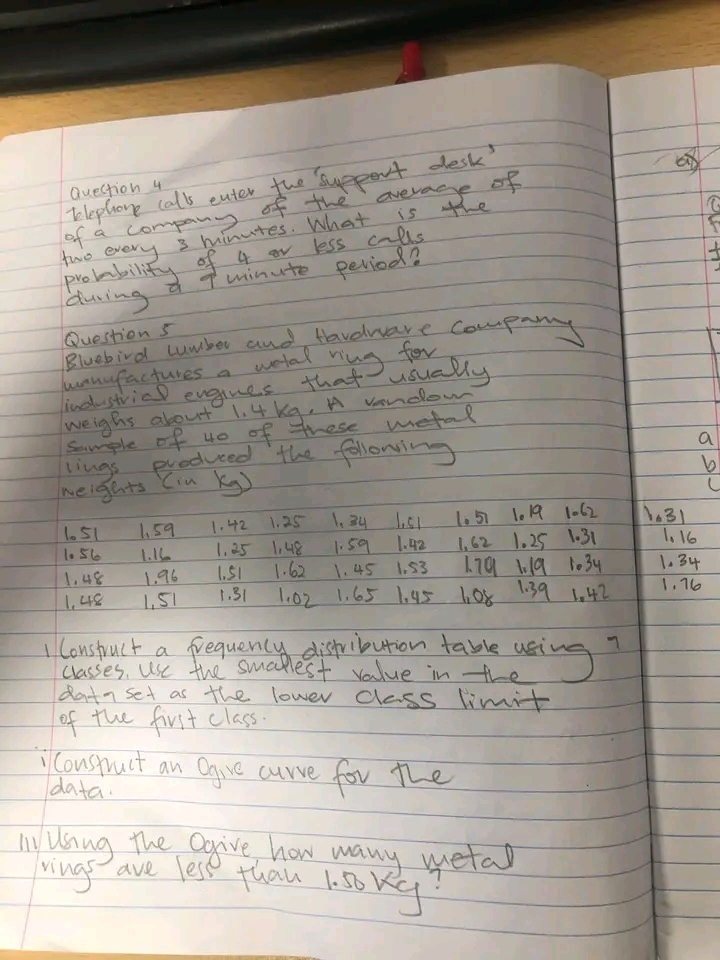 Question 4
Telephone calls enter the 'support desk'
of a company of the average of
two every 3 minutes. What is the
probability of 4 or less calls
during a 9 minute period?
Question 5
Bluebird Lumber and Hardware Company
manufactures a metal ring for
industrial engines that usually
weighs about 1.4 kg. A random
sample of 40 of these metal
rings produced the following
weights (in kg)
1.51 1.59 1.42 1.25 1.34 1.51 1.51 1.19 1.62 1.31
1.56 1.16 1.25 1.48 1.59 1.42 1.62 1.25 1.31 1.16
1.48 1.96 1.51 1.62 1.45 1.53 1.79 1.19 1.34 1.34
1.48 1.51 1.31 1.02 1.65 1.45 1.08 1.39 1.42 1.76
i Construct a frequency distribution table using 7
classes. Use the smallest value in the
data set as the lower class limit
of the first class.
i Construct an Ogive curve for the
data.
iii Using the Ogive, how many metal
rings are less than 1.50 Kg?
a
b